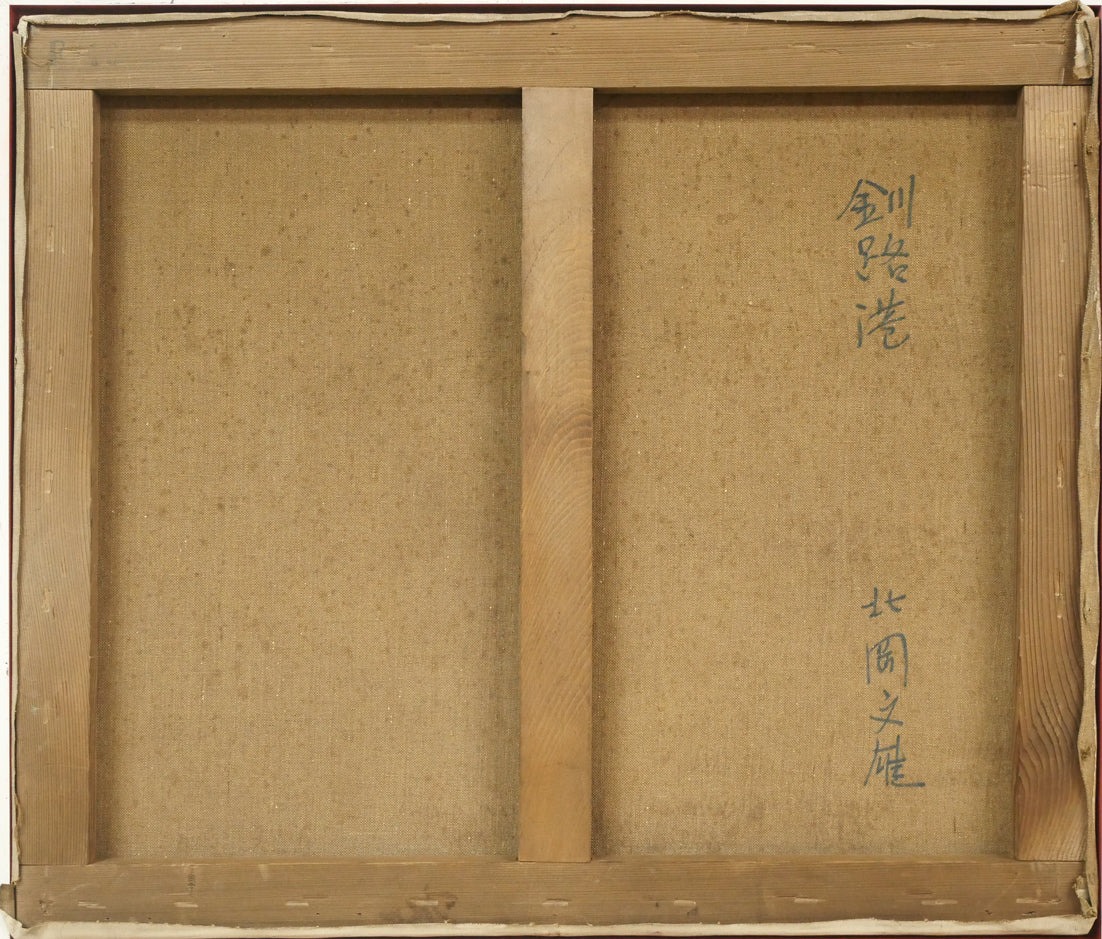 釧路港
北岡文雄